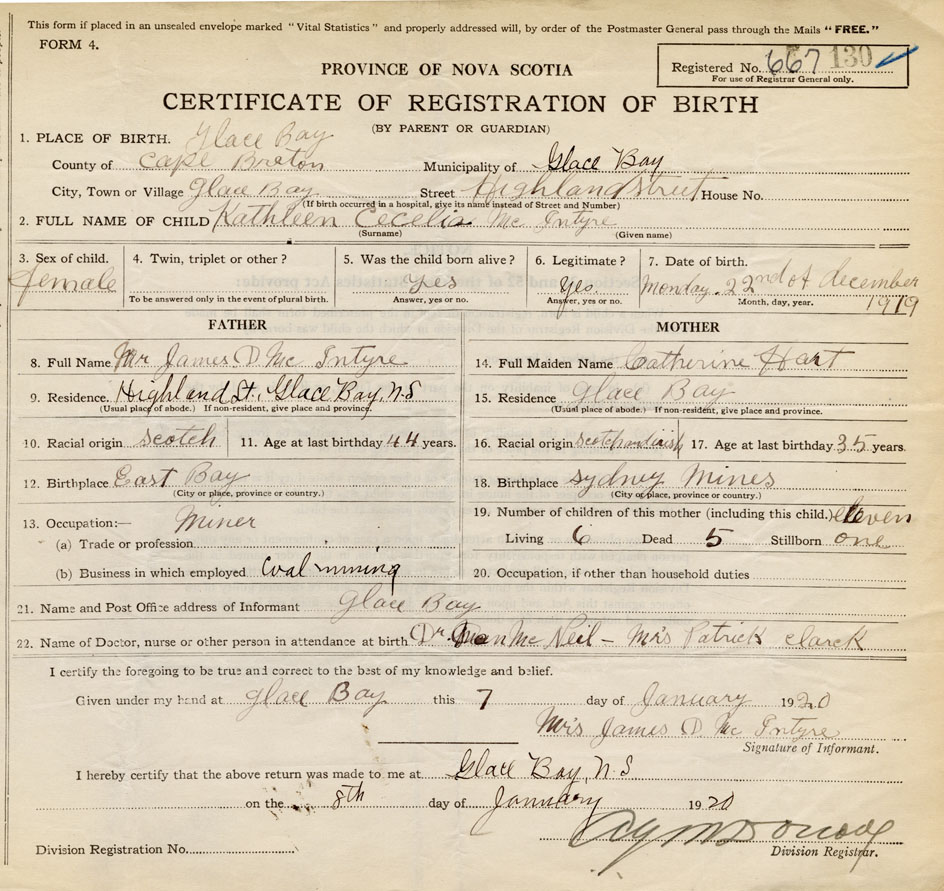 This form if placed in an unsealed envelope marked "Vital Statistics" and properly addressed will, by order of the Postmaster General pass through the Mails "FREE."
FORM 4.
Registered No. 667 130
For use of Registrar General only.
PROVINCE OF NOVA SCOTIA
CERTIFICATE OF REGISTRATION OF BIRTH
(BY PARENT OR GUARDIAN)
1. PLACE OF BIRTH. Glace Bay
County of Cape Breton Municipality of Glace Bay
City, Town or Village Glace Bay Street Highland street House No.
(If birth occurred in a hospital, give its name instead of Street and Number)
2. FULL NAME OF CHILD Kathleen Cecelia Mc Intyre
(Surname) (Given name)
3. Sex of child. 4. Twin, triplet or other? 5. Was the child born alive? 6. Legitimate? 7. Date of birth.
female yes Yes. Monday 22nd of december
To be answered only in the event of plural birth. Answer, yes or no. Answer, yes or no. Month, day, year. 1919
FATHER MOTHER
8. Full Name Mr James D Mc Intyre 14. Full Maiden Name Catherine Hart
9. Residence. Highland St., Glace Bay, N.S 15. Residence Glace Bay
(Usual place of abode.) If non-resident, give place and province. (Usual place of abode.) If non-resident, give place and province.
10. Racial origin Scotch 11. Age at last birthday 44 years. 16. Racial origin scotch and irish 17. Age at last birthday 35 years.
12. Birthplace East Bay 18. Birthplace Sydney Mines
(City or place, province or country.) (City or place, province or country.)
13. Occupation:— Miner 19. Number of children of this mother (including this child.) eleven
(a) Trade or profession Living 6 Dead 5 Stillborn one
(b) Business in which employed Coal mining 20. Occupation, if other than household duties
21. Name and Post Office address of Informant Glace Bay
22. Name of Doctor, nurse or other person in attendance at birth Dr. Mc Neil – Mrs Patrick clarck
I certify the foregoing to be true and correct to the best of my knowledge and belief.
Given under my hand at Glace Bay this 7 day of January 1920
Mrs James D Mc Intyre
Signature of Informant.
I hereby certify that the above return was made to me at Glace Bay, N.S
on the 8th day of January 1920
Division Registration No. Division Registrar.